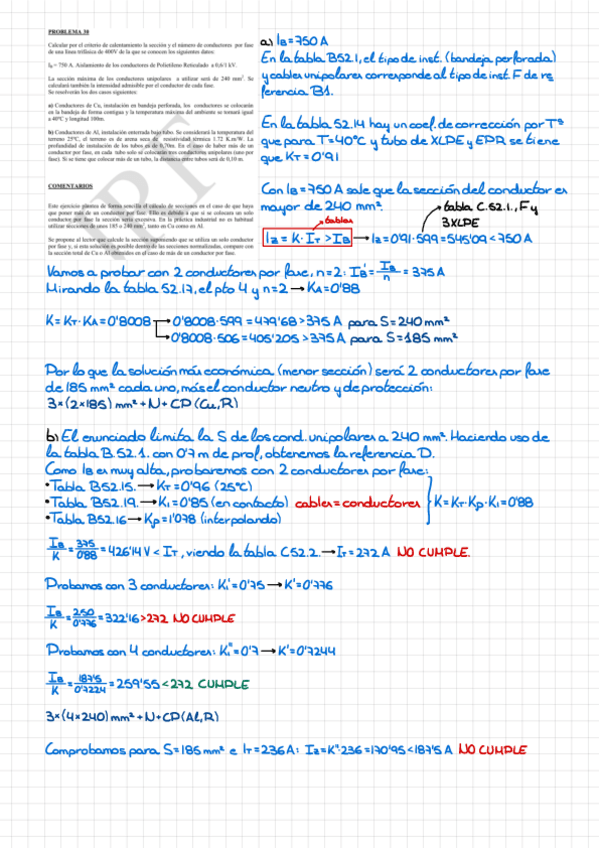 PROBLEMA 30
Calcular por el criterio de calentamiento la sección y el número de conductores por fase
de una línea trifásica de 400V de la que se conocen los siguientes datos:
IB = 750 A. Aislamiento de los conductores de Polietileno Reticulado a 0,6/1 kV.
La sección máxima de los conductores unipolares a utilizar será de 240 mm². Se
calculará también la intensidad admisible por el conductor de cada fase.
Se resolverán los dos casos siguientes:
a) Conductores de Cu, instalación en bandeja perforada, los conductores se colocarán
en la bandeja de forma contigua y la temperatura máxima del ambiente se tomará igual
a 40ºC y longitud 100m.
b) Conductores de Al, instalación enterrada bajo tubo. Se considerará la temperatura del
terreno 25ºC, el terreno es de arena seca de resistividad térmica 1.72 K.m/W. La
profundidad de instalación de los tubos es de 0,70m. En el caso de haber más de un
conductor por fase, en cada tubo solo se colocarán tres conductores unipolares (uno por
fase). Si se tiene que colocar más de un tubo, la distancia entre tubos será de 0,10 m.
COMENTARIOS
Este ejercicio plantea de forma sencilla el cálculo de secciones en el caso de que haya
que poner más de un conductor por fase. Ello es debido a que si se colocara un solo
conductor por fase la sección sería excesiva. En la práctica industrial no es habitual
utilizar secciones de unos 185 ó 240 mm², tanto en Cu como en Al.
Se propone al lector que calcule la sección suponiendo que se utiliza un solo conductor
por fase y, si esta solución es posible dentro de las secciones normalizadas, compare con
la sección total de Cu o Al obtenidos en el caso de más de un conductor por fase.
a) IB = 750 A
En la tabla B52.1, el tipo de inst. (bandeja perforada)
y cables unipolares corresponde al tipo de inst. F de re
ferencia B1.
En la tabla 52.14 hay un coef. de corrección por Tª
que para T=40ºC y tubo de XLPE y EPR se tiene
que KT = 0'91
Con IB = 750 A sale que la sección del conductor es
mayor de 240 mm².
tabla C.52.1., F y
3XLPE
tablas
Iz = K · IT > IB → Iz = 0'91·599 = 545'09 < 750 A
Vamos a probar con 2 conductores por fase, n=2: IB' = IB/n = 375 A
Mirando la tabla 52.17, el pto 4 y n=2 → KA = 0'88
K = KT·KA = 0'8008 → 0'8008·599 = 479'68 > 375 A para S = 240 mm²
→ 0'8008·506 = 405'205 > 375 A para S = 185 mm²
Por lo que la solución más económica (menor sección) será 2 conductores por fase
de 185 mm² cada uno, más el conductor neutro y de protección:
3×(2×185) mm² + N + CP (Cu,R)
b) El enunciado limita la S de los cond. unipolares a 240 mm². Haciendo uso de
la tabla B.52.1. con 0'7 m de prof, obtenemos la referencia D.
Como IB es muy alta, probaremos con 2 conductores por fase:
• Tabla B52.15. → KT = 0'96 (25ºC)
• Tabla B52.19. → K1 = 0'85 (en contacto) cables = conductores
• Tabla B52.16 → Kp = 1'078 (interpolando)
K = KT·Kp·K1 = 0'88
IB/K = 375/0'88 = 426'14 V < IT, viendo la tabla C52.2. → IT = 272 A NO CUMPLE.
Probamos con 3 conductores: K1' = 0'75 → K' = 0'776
IB/K = 250/0'776 = 322'16 > 272 NO CUMPLE
Probamos con 4 conductores: K1'' = 0'7 → K' = 0'7244
IB/K = 187'5/0'7224 = 259'55 < 272 CUMPLE
3×(4×240) mm² + N + CP (Al,R)
Comprobamos para S = 185 mm² e IT = 236 A: Iz = K''·236 = 170'95 < 187'5 A NO CUMPLE